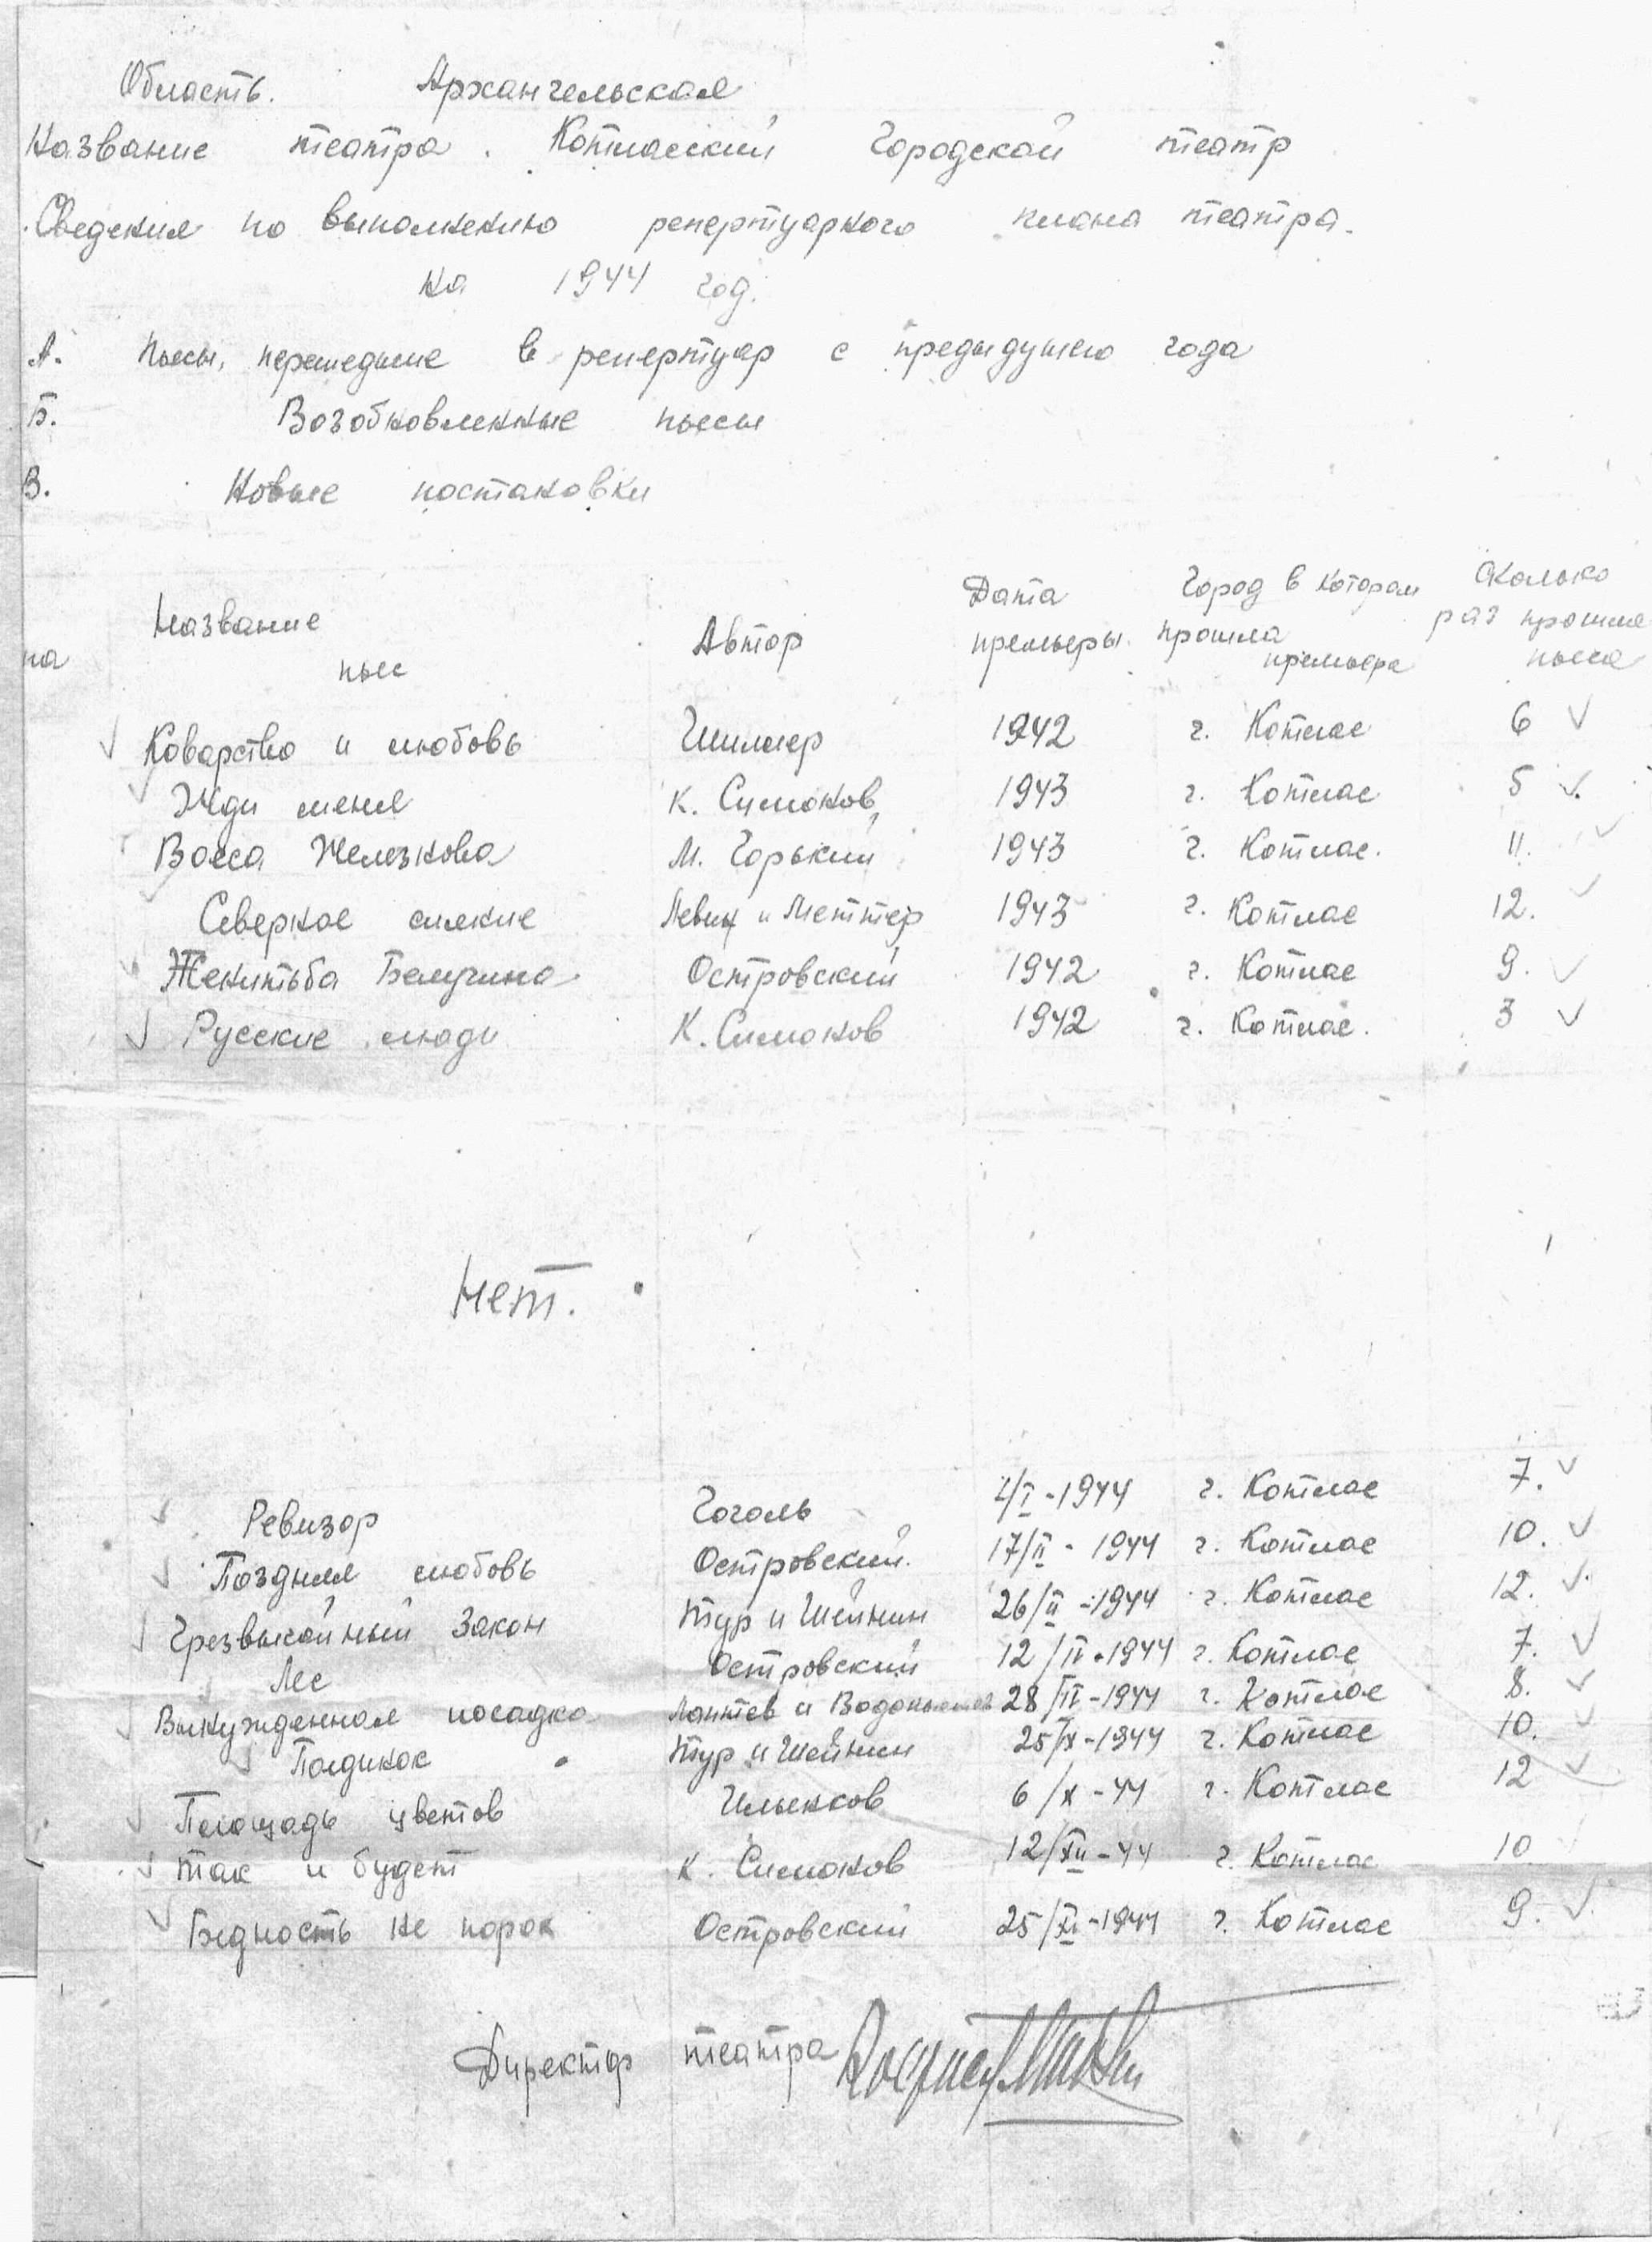 Область. Архангельская
Название театра. Котласский Городской театр
Сведения по выполнению репертуарного плана театра.
на 1944 год.
А. Пьесы, перешедшие в репертуар с предыдущего года
Б. Возобновленные пьесы
В. Новые постановки
Название пьес Автор Дата премьеры. Город в котором прошла премьера Сколько раз прошла пьеса
Коварство и любовь Шиллер 1942 г. Котлас 6
Жди меня К. Симонов 1943 г. Котлас 5
Васса Железнова М. Горький 1943 г. Котлас. 11.
Северное сияние Левин и Меттер 1943 г. Котлас 12.
Женитьба Белугина Островский 1942 г. Котлас 9.
Русские люди К. Симонов 1942 г. Котлас. 3
Нет.
Ревизор Гоголь 1944 г. Котлас 7.
Поздняя любовь Островский. 17/II - 1944 г. Котлас 10.
Чрезвычайный Закон Тур и Шейнин 26/II - 1944 г. Котлас 12.
Лес Островский 12/IV - 1944 г. Котлас 7.
Вынужденная посадка и 28/IV - 1944 г. Котлас 8.
Поединок Тур и Шейнин 25/IX - 1944 г. Котлас 10.
Площадь цветов Ильенков 6/X - 44 г. Котлас 12
Так и будет К. Симонов 12/XII - 44 г. Котлас 10
Бедность не порок Островский 25/XII - 1944 г. Котлас 9.
Директор театра